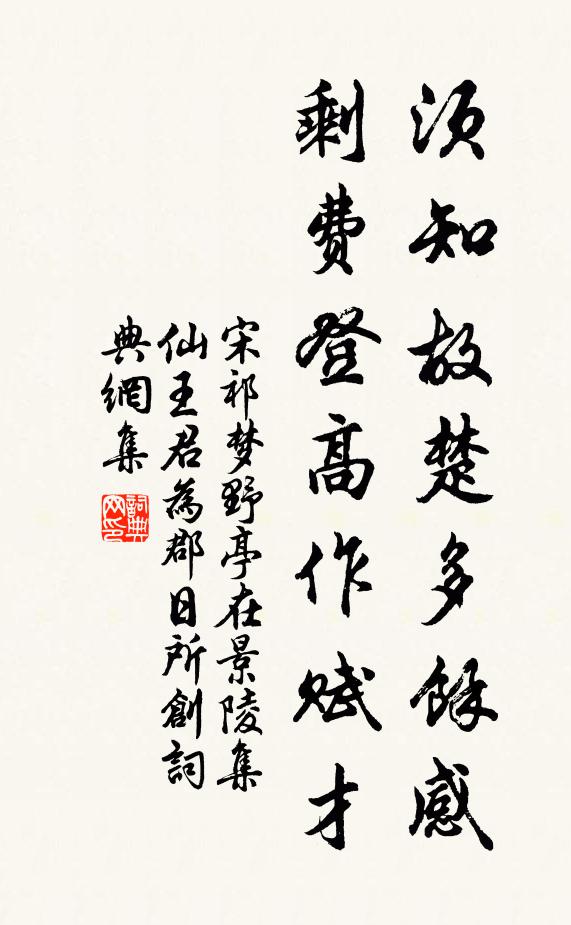 須知故楚多餘感
剩費登高作賦才
宋祁梦野亭在景陵集
仙王君為郡日所創詞
典網集
詞典
网印